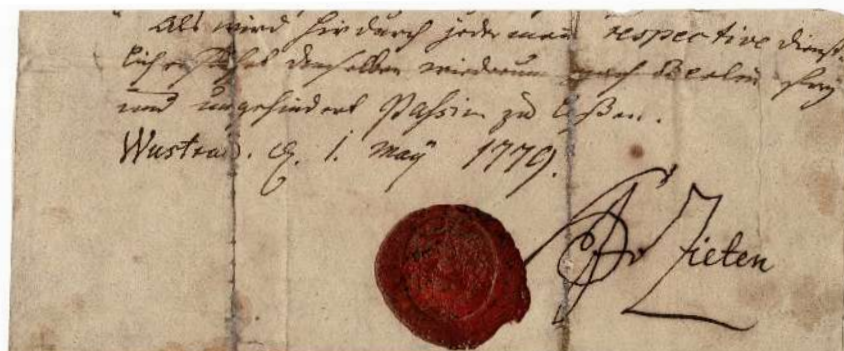 Als wird hirdurch jederman respective dienst-
lich ersuchet denselben wiederum nach Berlin frey
und ungehindert Passiren zu laßen.
Wustrau. d. 1. May 1779.
Zieten